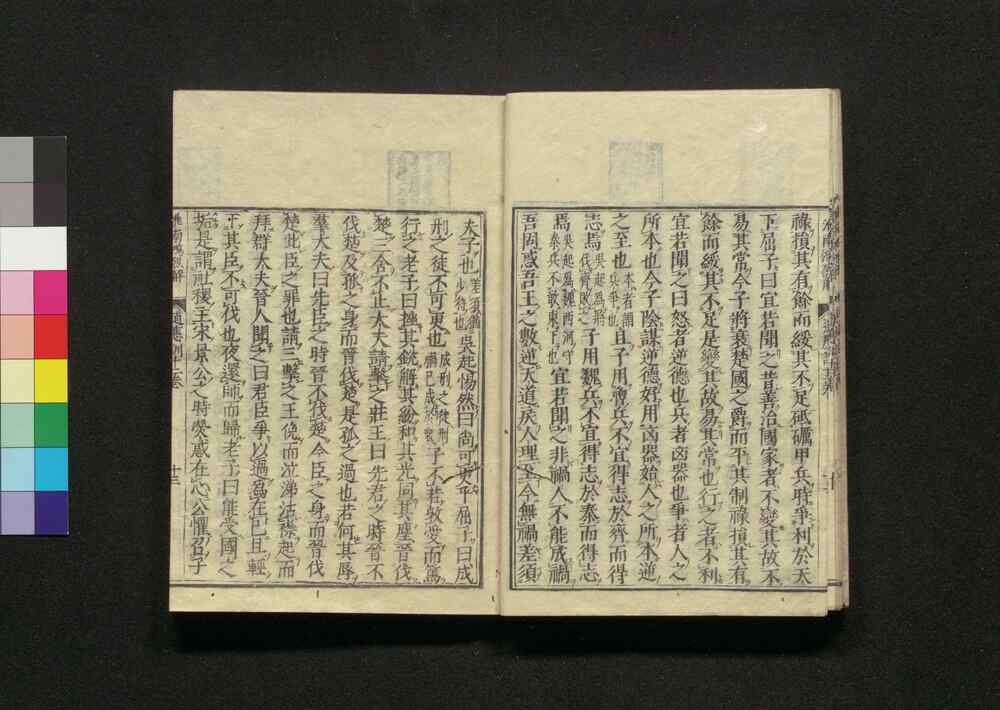 祿損其有餘而綏其不足砥礪甲兵時爭利於天
下屈子曰宜若聞之昔善治國家者不變其故不
易其常今子將衰楚國之爵而平其制祿損其有
餘而綏其不足是變其故易其常也行之者不利
宜若聞之曰怒者逆德也兵者凶器也爭者人之
所本也今子陰謀逆德好用凶器始人之所本逆
之至也本者謂兵爭也且子用魯兵不宜得志於齊而得
志焉吳起爲魯將伐齊敗之子用魏兵不宜得志於秦而得志
焉吳起爲魏西河守秦兵不敢東下也宜若聞之非禍人不能成禍
吾固惑吾王之數逆天道戾人理至今無禍差須
夫子也差須猶少待也吳起惕然曰尚可更乎屈子曰成
刑之徒不可更也成刑之徒刑禍已成於衆子不若敦愛而篤
行之老子曰挫其銳解其紛和其光同其塵晉伐
楚三舍不止大夫請擊之莊王曰先君之時晉不
伐楚及孤之身而晉伐楚是孤之過也若何其辱
羣大夫曰先臣之時晉不伐楚今臣之身而晉伐
楚此臣之罪也請三擊之王俛而泣涕沾襟起而
拜羣大夫晉人聞之曰君臣爭以過爲在己且輕
下其臣不可伐也夜還師而歸老子曰能受國之
垢是謂社稷主宋景公之時熒惑在心公懼召子
十三